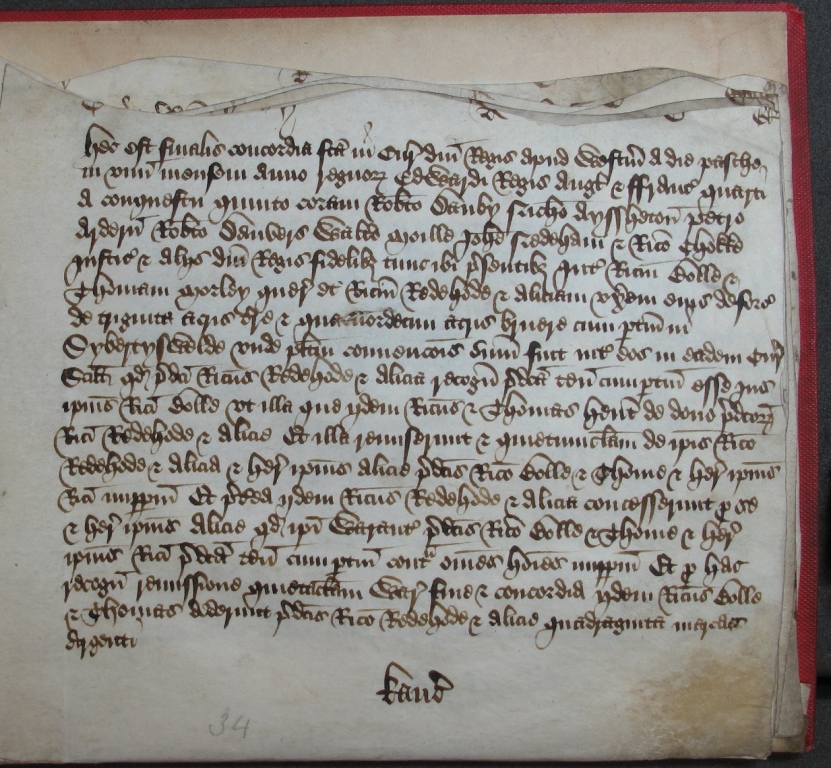 Hec est finalis concordia fca in Cur dni Regis apud Westm a die pasche
in unu mensem anno regnor Edwardi Regis Angl & ffranc quarti
a conquestu quinto coram Robto Danby Rico Ayssheton Petro
Ardern Robto Danvers Walto Moille Johe Nedeham & Rico Chokke
Justic & aliis dni Regis fidelibz tunc ibi psentibz Int Ricm Bolle &
Thomam Morley quer Et Ricm Redehode & Aliciam uxem eius deforc
de triginta acris tre & quatuordecim acris bruere cum ptin in
Sybertyswelde unde plitm convencois sum fuit int eos in eadem Cur
Scilt qd pdci Ricus Redehode & Alicia recogn pdca ten cum ptin esse jus
ipius Rici Bolle ut illa que idem Ricus & Thomas hent de dono pdcor
Rici Redehode & Alicie Et illa remiserunt & quietumclam de ipis Rico
Redehode & Alicia & her ipius Alicie pdcis Rico Bolle & Thome & her ipius
Rici imppm Et pterea idem Ricus Redehode & Alicia concesserunt p se
& her ipius Alicie qd ipi Warant pdcis Rico Bolle & Thome & her
ipius Rici pdca ten cum ptin cont omes hoies imppm Et p hac
recogn remissione quietaclam War fine & concordia idem Ricus Bolle
& Thomas dederunt pdcis Rico Redehode & Alicie quadraginta marcas
argenti
Kanc
34